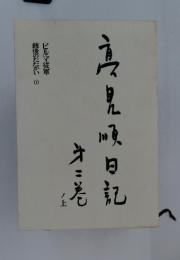 高見順日記
第二巻
ノ上
ビルマ従軍
戦後のたたかい (1)